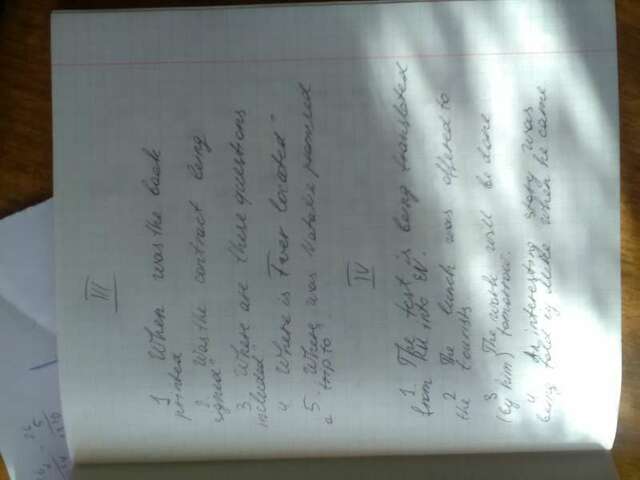 III
1 When was the book
printed
2 Was the contract being
signed"
3 Where are these questions
included"
4 Where is Tver located"
5. Where was Natalie promised
a trip to
IV
1 The text is being translated
from RU into EN.
2 The lunch was offered to
the tourists
3 The work will be done
(by him) tomorrow.
4 An interesting story was
being told by Mike when he came